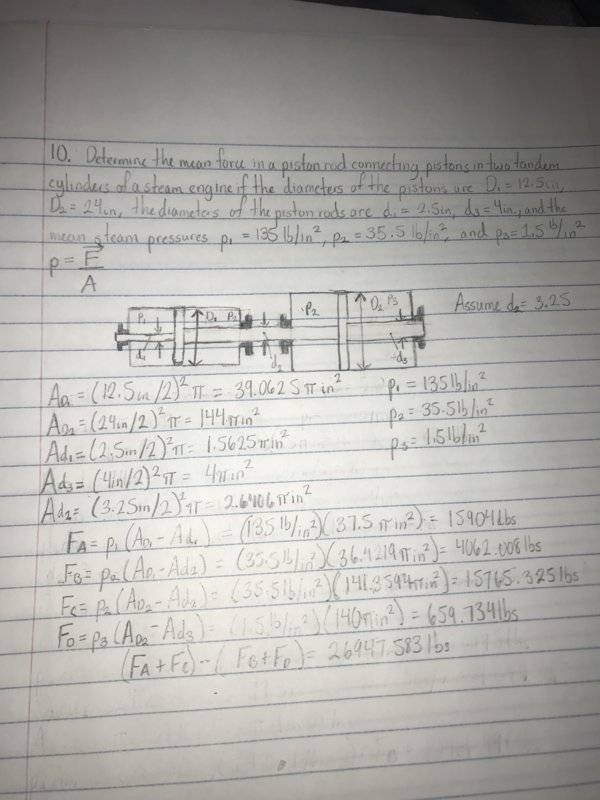 10. Determine the mean force in a piston rod connecting pistons in two tandem
cylinders of a steam engine if the diameters of the pistons are D₁ = 12.5in,
D₂ = 24in, the diameters of the piston rods are d₁ = 2.5in, d₃ = 4in, and the
mean steam pressures p₁ = 135 lb/in², p₂ = 35.5 lb/in², and p₃ = 1.5 lb/in²
p = F/A
P₁ D₁ P₂ P₂ D₂ P₃ Assume d₂ = 3.25
d₁ d₂ d₃
A_D₁ = (12.5in/2)²π = 39.0625π in² p₁ = 135 lb/in²
A_D₂ = (24in/2)²π = 144π in² p₂ = 35.5 lb/in²
Ad₁ = (2.5in/2)²π = 1.5625π in² p₃ = 1.5 lb/in²
Ad₃ = (4in/2)²π = 4π in²
Ad₂ = (3.25in/2)²π = 2.6406π in²
F_A = p₁(A_D₁ - Ad₁) = (135 lb/in²)(37.5π in²) = 15904 lbs
F_B = p₂(A_D₁ - Ad₂) = (35.5 lb/in²)(36.4219π in²) = 4062.008 lbs
F_C = p₂(A_D₂ - Ad₂) = (35.5 lb/in²)(141.3594π in²) = 15765.325 lbs
F_D = p₃(A_D₂ - Ad₃) = (1.5 lb/in²)(140π in²) = 659.734 lbs
(F_A + F_C) - (F_B + F_D) = 26947.583 lbs